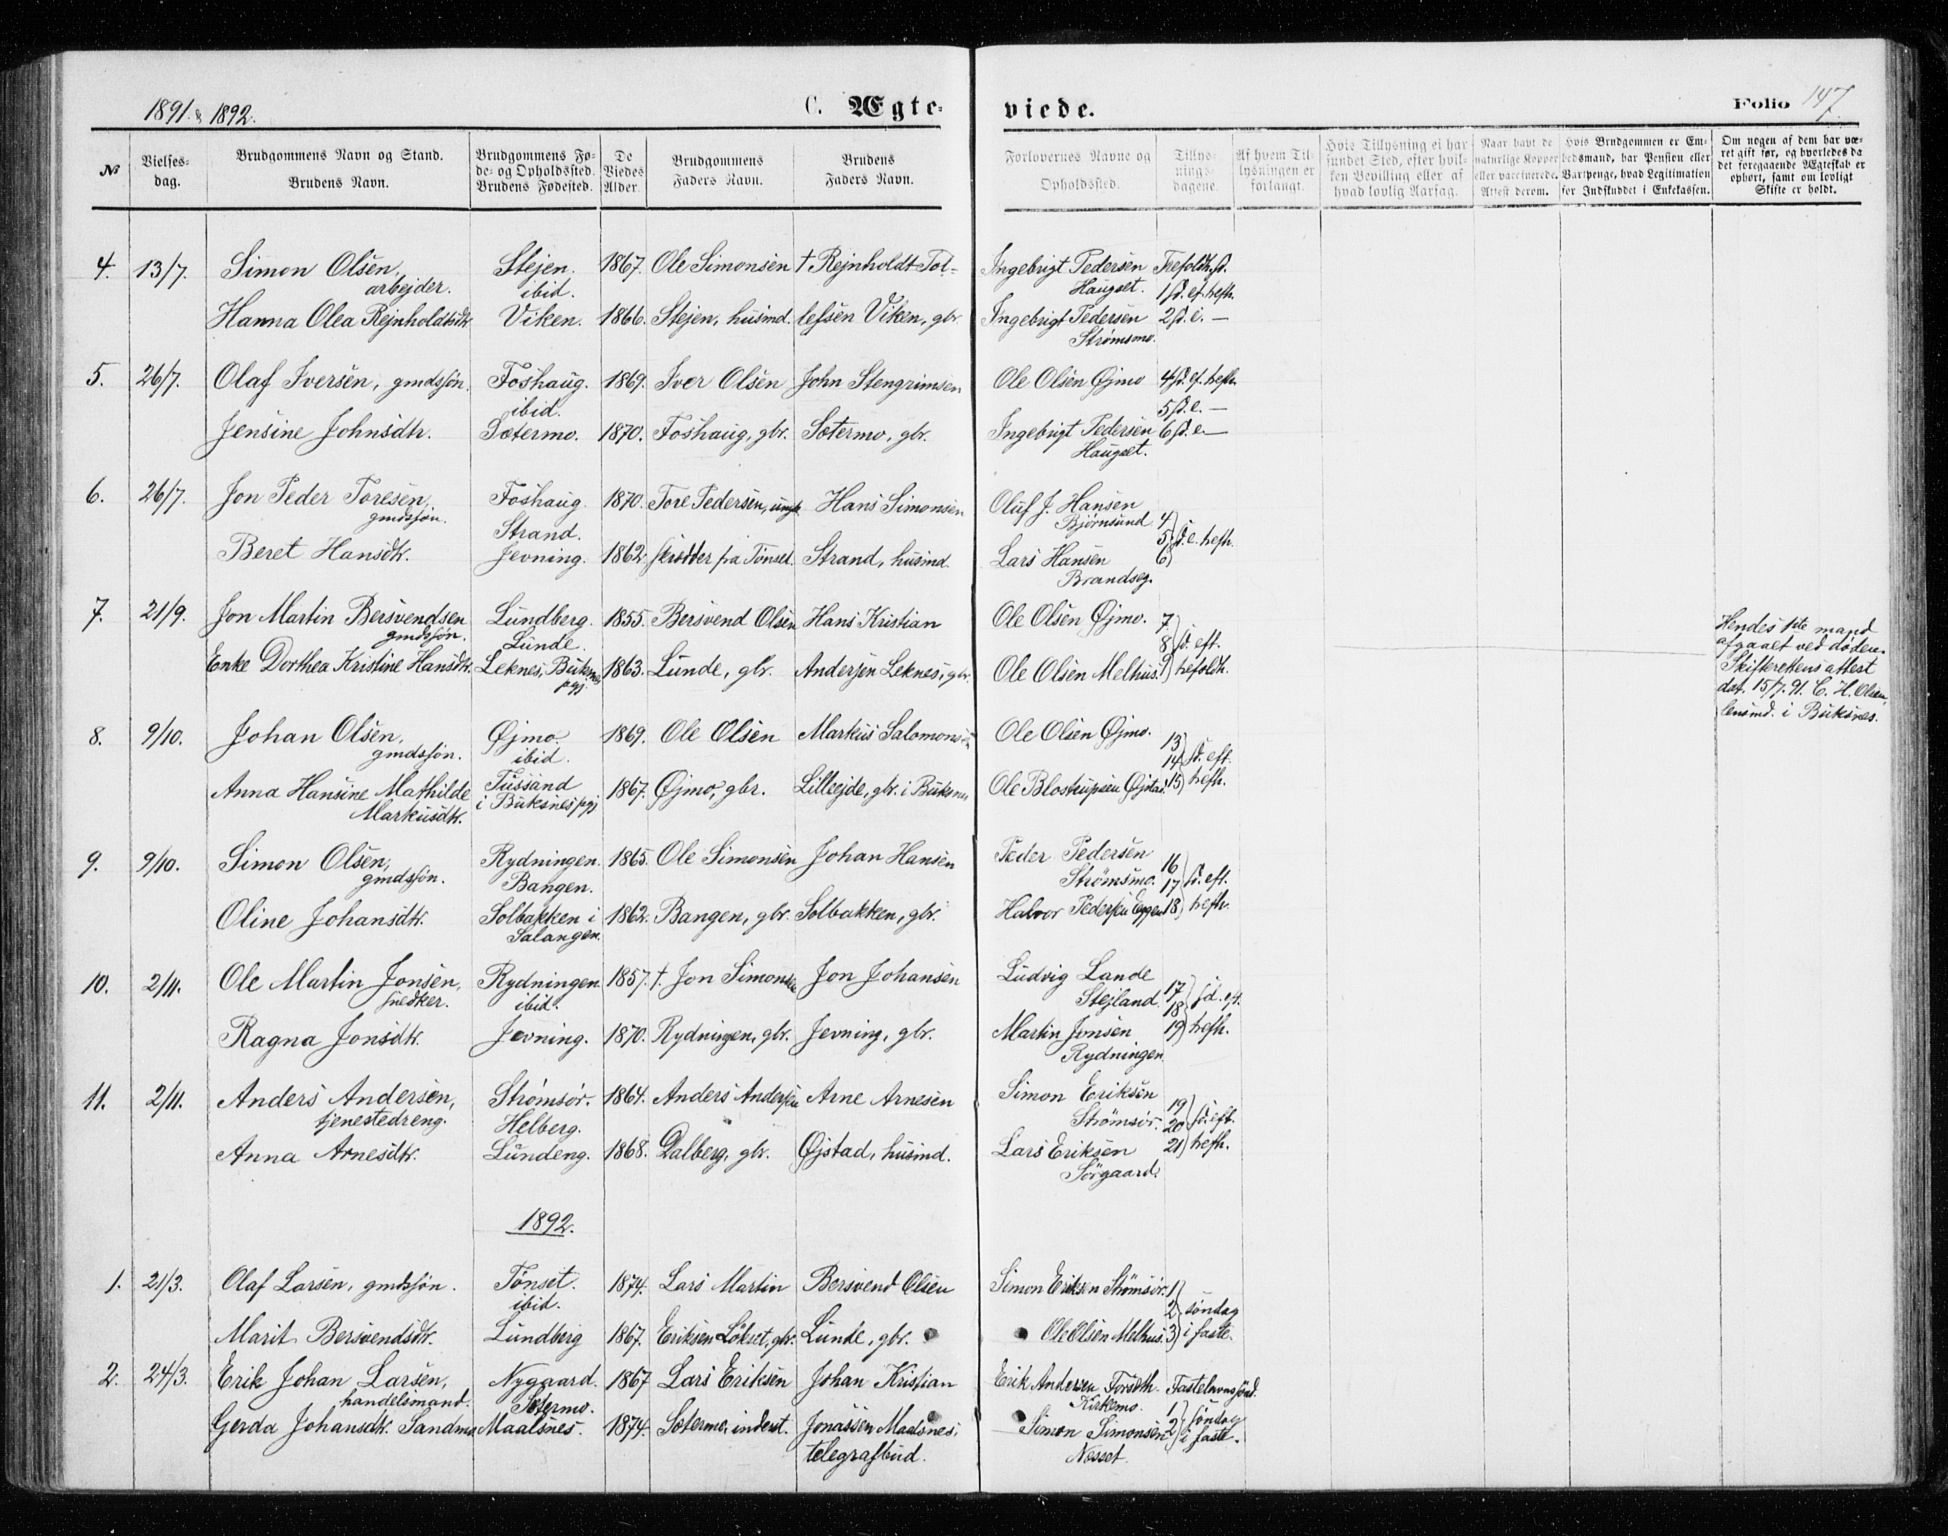 1891 & 1892.
C. Ægteviede.
Folio 147.
№
Vielsesdag.
Brudgommens Navn og Stand.
Brudens Navn.
Brudgommens Føde- og Opholdssted.
Brudens Fødested.
De Viedes Alder.
Brudgommens Faders Navn.
Brudens Faders Navn.
Forlovernes Navne og Opholdssted.
Tillysningsdagene.
Af hvem Tillysningen er forlangt.
Hvis Tillysning ei har fundet Sted, efter hvilken Bevilling eller af hvad lovlig Aarsag.
Naar havt de naturlige Kopper eller vaccinerede. Attest derom.
Hvis Brudgommen er Embedsmand, har Pension eller Vartpenge, hvad Legitimation for Indskuddet i Enkekassen.
Om nogen af dem har været gift før, og hvorledes da det foregaaende Ægteskab er ophørt, samt om lovligt Skifte er holdt.
4. 13/7. Simon Olsen, arbejder. Stejen. ibid. 1867. Ole Simonsen † Rejnholdt Tol- Ingebrigt Pedersen Haugset. Trefoldh.sd. 1 sd. ef. hefh.
Hanna Olea Rejnholdtsdtr. Viken. 1866. Stejen, husmd. lefsen Viken, gbr. Ingebrigt Pedersen Strømsmo. 2 sd. e. —
5. 26/7. Olaf Iversen, gmdssøn. Foshaug. ibid. 1869. Iver Olsen John Stengrimsen Ole Olsen Øjmo 4 sd. ef. hefh. 5 sd. e. —
Jensine Johnsdtr. Sætermo. 1870. Foshaug, gbr. Sætermo, gbr. Ingebrigt Pedersen Haugset. 6 sd. e. —
6. 26/7. Jon Peder Toresen, gmdssøn. Foshaug. Strand. 1870. Tore Pedersen, ungk. Hans Simonsen Oluf J. Hansen Bjørnsund 4
Beret Hansdtr. Jevning. 1862. skrædder fra Tønset. Strand, husmd. Lars Hansen Brandseg. 5 6 sd. e. hefh.
7. 21/9. Jon Martin Bersvendsen gmdssøn. Lundberg. Lunde. 1855. Bersvend Olsen Hans Kristian Ole Olsen Øjmo. 7 8 sd. eft.
Enke Dorthea Kristine Hansdtr. Leknes, Buksnes pgj. 1863. Lunde, gbr. Andersen Leknes, gbr. Ole Olsen Melhus. 9 hefoldh.
Hendes 1ste mand
afgaaet ved døden.
Skifterettens attest
dat. 15/7. 91. C. H. Olsen,
lensmd. i Buksnes.
8. 9/10. Johan Olsen, gmdssøn. Øjmo. ibid. 1869. Ole Olsen Markus Salomonsen Ole Olsen Øjmo. 13 14 sd. eft.
Anna Hansine Mathilde Markusdtr. Tussand i Buksnes pgj 1867. Øjmo, gbr. Lilleejde, gbr. i Buksnes Ole Blostrupsen Øjstad. 15 hefh.
9. 9/10. Simon Olsen, gmdssøn. Rydningen. Bangen. 1865. Ole Simonsen Johan Hansen Peder Pedersen Strømsmo. 16 17 sd. eft.
Oline Johansdtr. Solbakken i Salangen. 1862. Bangen, gbr. Solbakken, gbr. Halvor Pedersen Eggen 18 hefh.
10. 2/11. Ole Martin Jonsen, snedker. Rydningen ibid. 1857. †. Jon Simonsen Jon Johansen Ludvig Lande Stejland. 17 18 sd. eft.
Ragna Jonsdtr. Jevning. 1870. Rydningen, gbr. Jevning, gbr. Martin Jonsen Rydningen. 19 hefh.
11. 2/11. Anders Andersen, tjenestedreng. Strømsør. Helberg. 1864. Anders Andersen Arne Arnesen Simon Eriksen Strømsør. 19 20 sd. eft.
Anna Arnesdtr. Lundeng. 1868. Dalberg, gbr. Øjstad, husmd. Lars Eriksen Sørgaard. 21 hefh.
1892.
1. 21/3. Olaf Larsen, gmdssøn. Tønset. ibid. 1874. Lars Martin Bersvend Olsen Simon Eriksen Strømsør. 1 2 søndag
Marit Bersvendsdtr. Lundberg 1867. Eriksen Løkset, gbr. Lunde, gbr. Ole Olsen Melhus. 3 i faste.
2. 24/3. Erik Johan Larsen, handelsmand. Nygaard. Sætermo. 1867 Lars Eriksen Johan Kristian Erik Andersen Forseth Kirkemo. Fastelavnssønd.
Gerda Johansdtr. Sandmo Maalsnes. 1874. Sætermo, inderst. Jonassen Maalsnes, telegrafbud. Simon Simonsen Nesset. 1 2 søndag i faste.